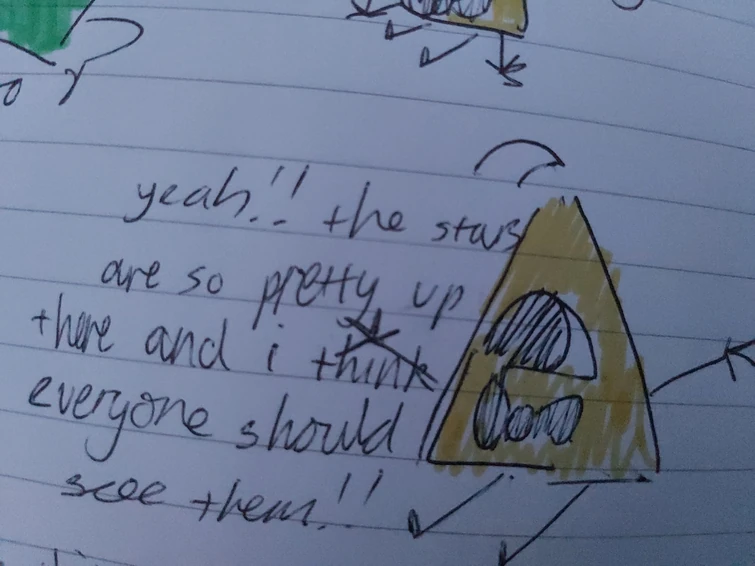 yeah!! the stars
are so pretty up
there and i think
everyone should
see them!!